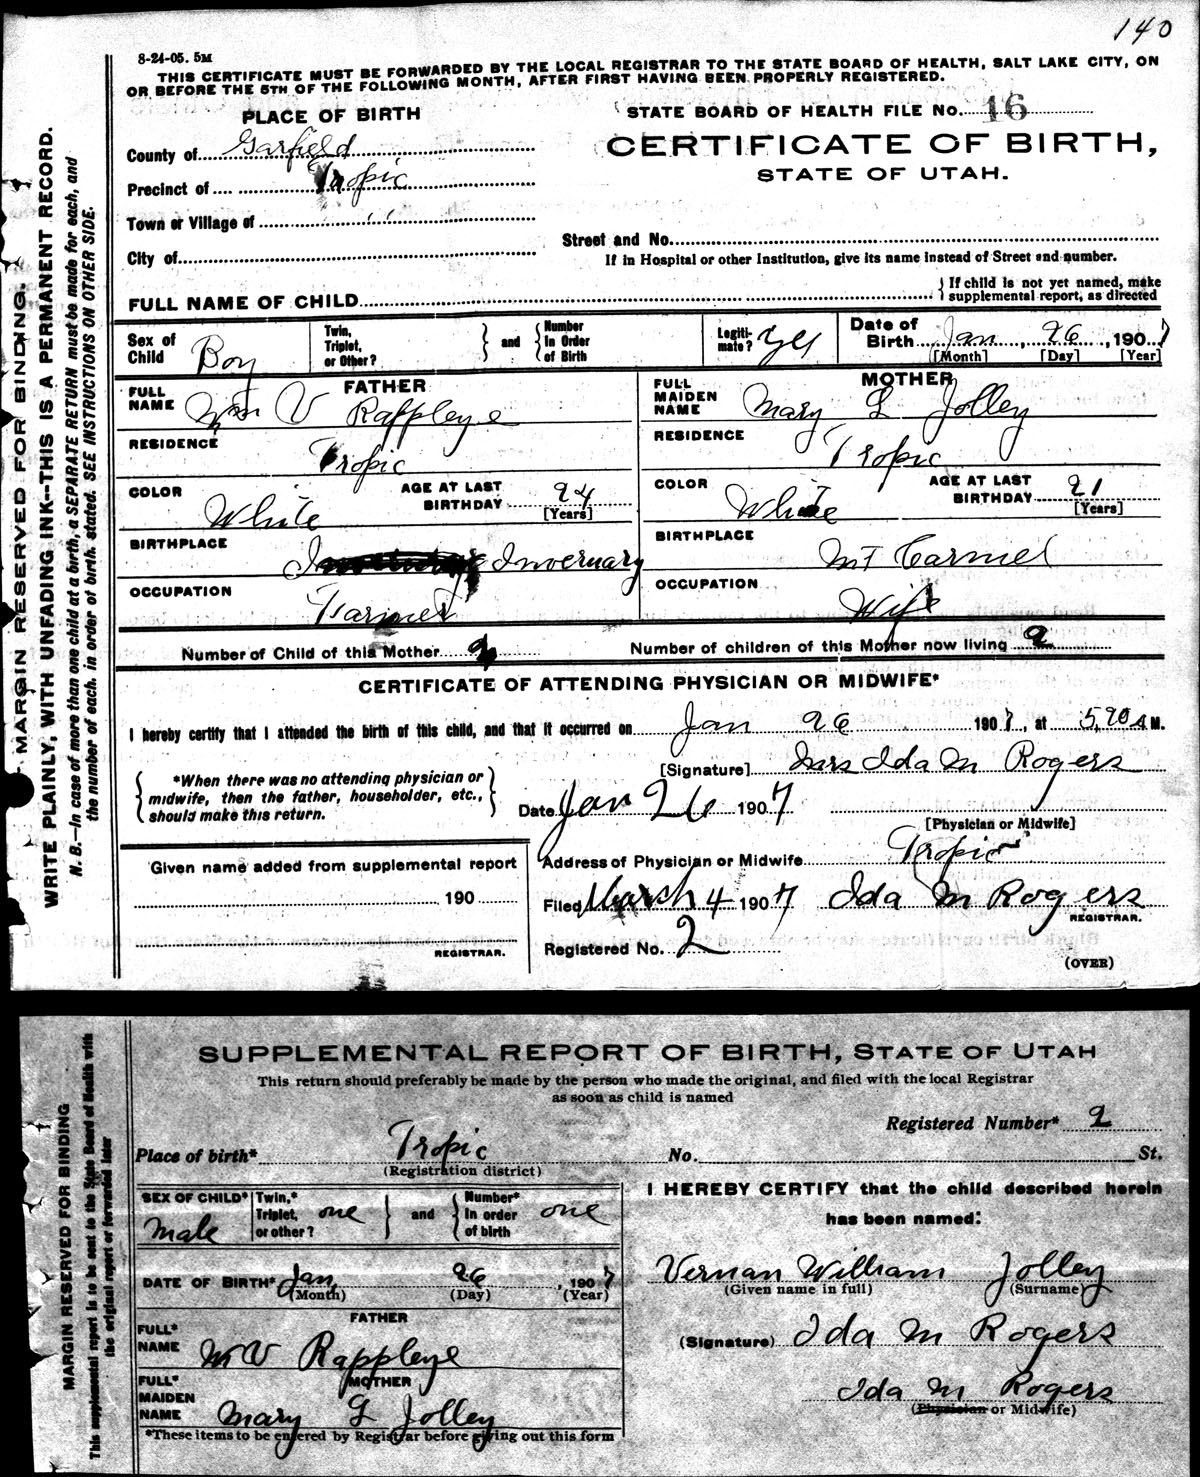 140
8-24-05. 5M
THIS CERTIFICATE MUST BE FORWARDED BY THE LOCAL REGISTRAR TO THE STATE BOARD OF HEALTH, SALT LAKE CITY, ON
OR BEFORE THE 5TH OF THE FOLLOWING MONTH, AFTER FIRST HAVING BEEN PROPERLY REGISTERED.
MARGIN RESERVED FOR BINDING.
WRITE PLAINLY, WITH UNFADING INK--THIS IS A PERMANENT RECORD.
N. B.--In case of more than one child at a birth, a SEPARATE RETURN must be made for each, and
the number of each, in order of birth, stated. SEE INSTRUCTIONS ON OTHER SIDE.
PLACE OF BIRTH
County of Garfield
Precinct of Tropic
Town or Village of " "
City of
STATE BOARD OF HEALTH FILE NO. 16
CERTIFICATE OF BIRTH,
STATE OF UTAH.
Street and No.
If in Hospital or other Institution, give its name instead of Street and number.
FULL NAME OF CHILD
If child is not yet named, make
supplemental report, as directed
Sex of Child Boy
Twin, Triplet, or Other? and Number In Order of Birth
Legiti-mate? Yes
Date of Birth Jan 26, 1907
[Month] [Day] [Year]
FATHER
FULL NAME Wm V Rappleye
RESIDENCE Tropic
COLOR White AGE AT LAST BIRTHDAY 24
[Years]
BIRTHPLACE Invernary
OCCUPATION Farmer
MOTHER
FULL MAIDEN NAME Mary L Jolley
RESIDENCE Tropic
COLOR White AGE AT LAST BIRTHDAY 21
[Years]
BIRTHPLACE Mt Carmel
OCCUPATION Wife
Number of Child of this Mother 2 Number of children of this Mother now living 2
CERTIFICATE OF ATTENDING PHYSICIAN OR MIDWIFE*
I hereby certify that I attended the birth of this child, and that it occurred on Jan 26 1907, at 5,20 A M.
*When there was no attending physician or
midwife, then the father, householder, etc.,
should make this return.
[Signature] Mrs Ida M Rogers
Date Jan 26 1907
[Physician or Midwife]
Given name added from supplemental report
190
REGISTRAR.
Address of Physician or Midwife Tropic
Filed March 4 1907 Ida M Rogers
REGISTRAR.
Registered No. 2
(OVER)
MARGIN RESERVED FOR BINDING
This supplemental report is to be sent to the State Board of Health with
the original report or forwarded later
SUPPLEMENTAL REPORT OF BIRTH, STATE OF UTAH
This return should preferably be made by the person who made the original, and filed with the local Registrar
as soon as child is named
Registered Number* 2
Place of birth* Tropic No. St.
(Registration district)
SEX OF CHILD* male
Twin,* Triplet, or other? one and Number* In order of birth one
DATE OF BIRTH* Jan, 26, 1907
(Month) (Day) (Year)
FATHER
FULL* NAME W V Rappleye
MOTHER
FULL* MAIDEN NAME Mary L Jolley
*These items to be entered by Registrar before giving out this form
I HEREBY CERTIFY that the child described herein
has been named:
Vernan William Jolley
(Given name in full) (Surname)
(Signature) Ida M Rogers
Ida M Rogers
(Physician or Midwife)